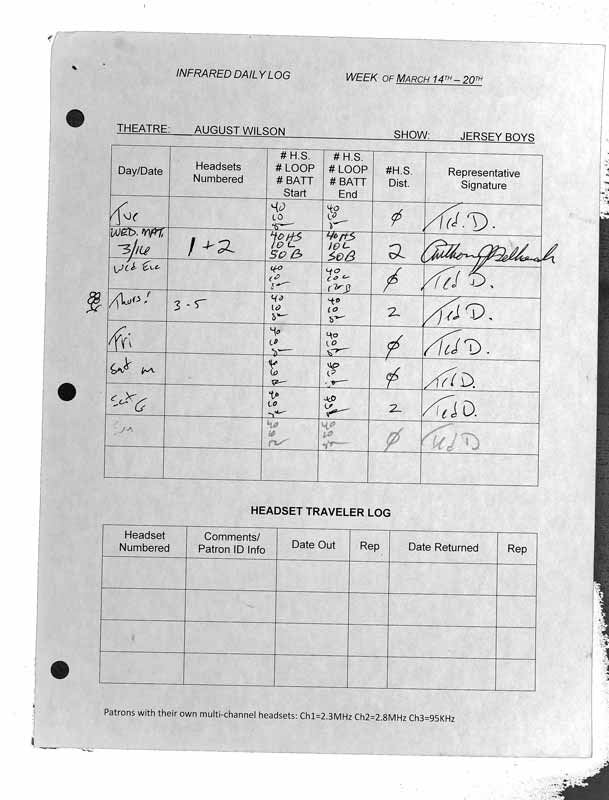 INFRARED DAILY LOG WEEK OF MARCH 14TH – 20TH
THEATRE: AUGUST WILSON SHOW: JERSEY BOYS
Day/Date Headsets Numbered # H.S. # LOOP # BATT Start # H.S. # LOOP # BATT End #H.S. Dist. Representative Signature
Tue 40 10 40 10 Ø Ted. D.
WED. MAT. 3/16 1+2 40HS 10L 50B 40HS 10L 50B 2 Anthony
Wed Eve 40 10 40 10 Ø Ted D.
Thurs! 3-5 40 10 40 10 2 Ted D.
Fri 40 10 40 10 Ø Ted D.
Sat m 40 40 Ø Ted D.
Sat 40 10 40 2 Ted D.
Sun 40 40 Ø Ted D
HEADSET TRAVELER LOG
Headset Numbered Comments/ Patron ID Info Date Out Rep Date Returned Rep
Patrons with their own multi-channel headsets: Ch1=2.3MHz Ch2=2.8MHz Ch3=95KHz